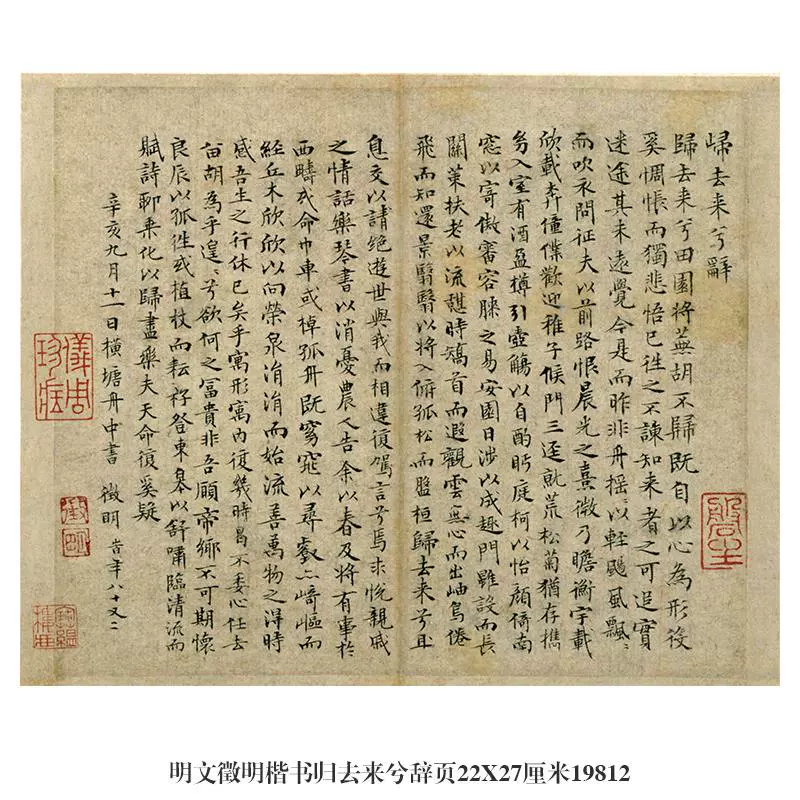 歸去来兮辭
歸去来兮田園將蕪胡不歸既自以心為形役
奚惆悵而獨悲悟已徃之不諫知来者之可追實
迷途其未遠覺今是而昨非舟揺〻以輕颺風飄〻
而吹衣問征夫以前路恨晨光之熹微乃瞻衡宇載
欣載奔僮僕歡迎稚子候門三逕就荒松菊猶存攜
幼入室有酒盈樽引壺觴以自酌眄庭柯以怡顔倚南
窓以寄傲審容膝之易安園日涉以成趣門雖設而長
關策扶老以流憇時矯首而遐觀雲無心而出岫鳥倦
飛而知還景翳翳以將入撫孤松而盤桓歸去来兮且
息交以請絶遊世與我而相違復駕言兮焉求悦親戚
之情話樂琴書以消憂農人告余以春及將有事於
西疇或命巾車或棹孤舟既窈窕以尋壑亦崎嶇而
經丘木欣欣以向榮泉涓涓而始流善萬物之得時
感吾生之行休已矣乎寓形寓内復幾時曷不委心任去
留胡為乎遑〻兮欲何之冨貴非吾願帝鄉不可期懷
良辰以孤徃或植杖而耘耔登東皋以舒嘯臨清流而
賦詩聊乗化以歸盡樂夫天命復奚疑
辛亥九月十一日横塘舟中書 徵明 年八十又二
儀周珍藏
徵明
明文徵明楷书归去来兮辞页22X27厘米19812